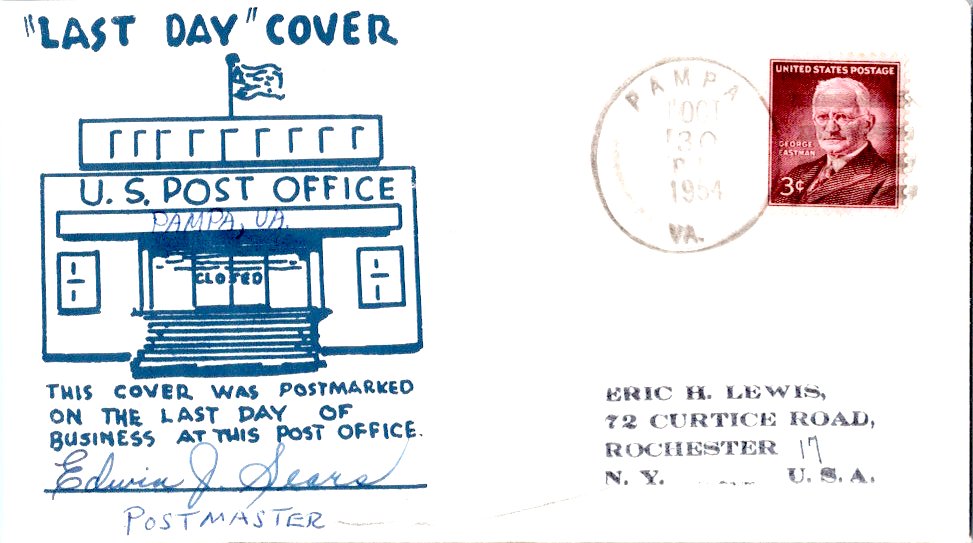 "LAST DAY" COVER
U.S. POST OFFICE
PAMPA, VA.
CLOSED
THIS COVER WAS POSTMARKED
ON THE LAST DAY OF
BUSINESS AT THIS POST OFFICE.
Edwin J. Sears
POSTMASTER
PAMPA
OCT
30
1954
VA.
UNITED STATES POSTAGE
GEORGE
EASTMAN
3¢
ERIC H. LEWIS,
72 CURTICE ROAD,
ROCHESTER 17
N. Y. U. S. A.